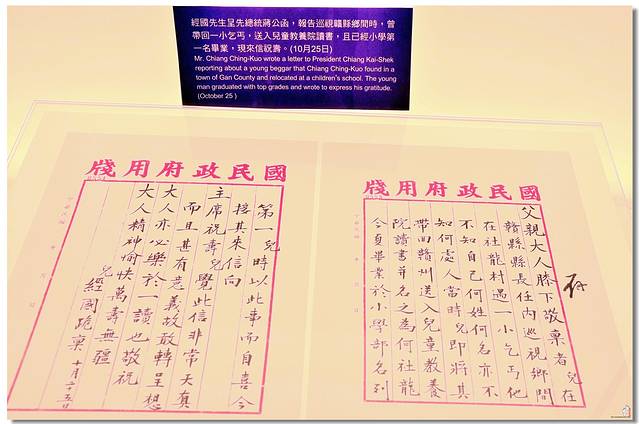 經國先生呈先總統蔣公函，報告巡視贛縣鄉間時，曾
帶回一小乞丐，送入兒童教養院讀書，且已經小學第
一名畢業，現來信祝壽。(10月25日)
Mr. Chiang Ching-Kuo wrote a letter to President Chiang Kai-Shek
reporting about a young beggar that Chiang Ching-Kuo found in a
town of Gan County and relocated at a children's school. The young
man graduated with top grades and wrote to express his gratitude.
(October 25 )
國民政府用牋
父親大人膝下敬稟者兒在
贛縣縣長任內巡視鄉間
在社龍村遇一小乞丐他
不知自己何姓何名亦不
知何處人當時兒即將其
帶回贛州送入兒童教養
院讀書并名之為何社龍
今夏畢業於小學部名列
國民政府用牋
第一兒時以此事而自喜今
接其來信向
主席祝壽兒覺此信非常天真
而且甚有意義故敢轉呈想
大人亦必樂於一讀也敬祝
大人精神愉快萬壽無疆
兒經國跪稟十月二十五日